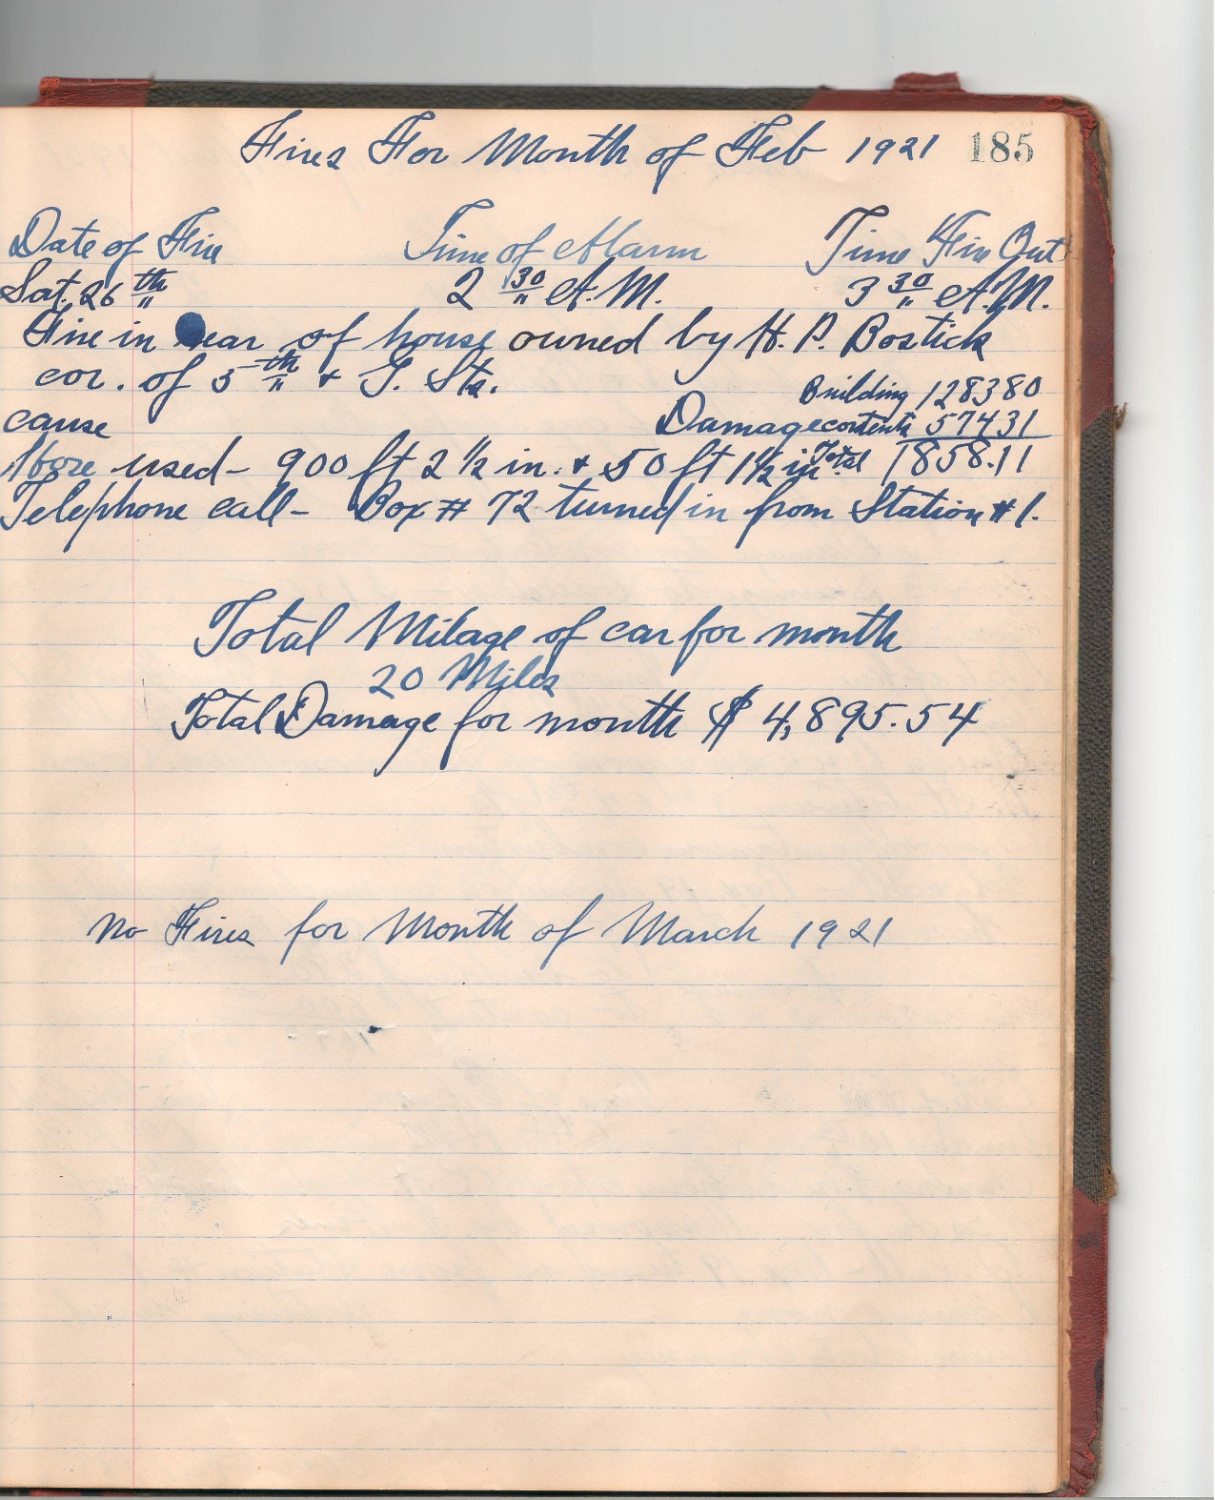 Fires For Month of Feb 1921 185
Date of Fire Time of Alarm Time Fire Out
Sat. 26th 2 30 A.M. 3 30 A.M.
Fire in rear of house owned by H. P. Bostick
cor. of 5th & G. Sts.
Building 128380
cause Damage contents 57431
Hose used - 900 ft 2 1/2 in. & 50 ft 1 1/2 in. Total 1858.11
Telephone call - Box # 72 turned in from Station # 1.
Total Milage of car for month
20 Miles
Total Damage for month $ 4,895.54
No Fires for Month of March 1921